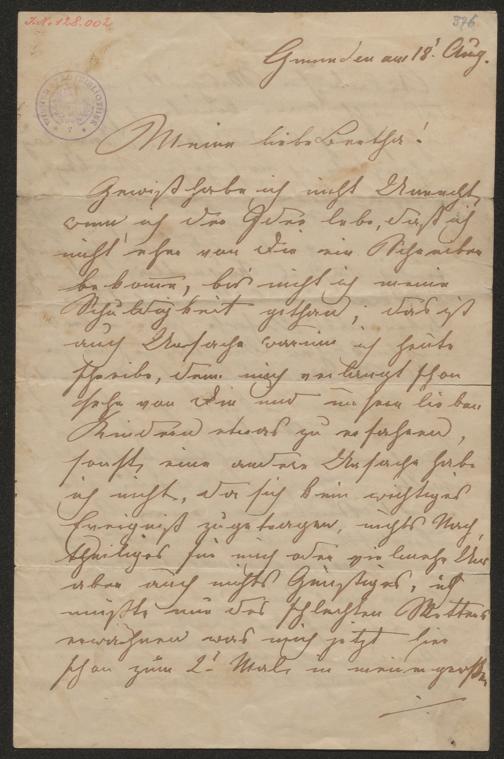 J.N. 128.002
376
Gmunden am 18t Aug.
Meine liebe Bertha!
Gewiß habe ich nicht Unrecht,
wenn ich der Idee lebe, daß ich
nicht eher von Dir ein Schreiben
bekomme, bis nicht ich meine
Schuldigkeit gethan; das ist
auch Ursache warum ich heute
schreibe, denn mich verlangt schon
sehr von Dir und unsern lieben
Kindern etwas zu erfahren,
sonst, eine andere Ursache habe
ich nicht, da sich kein wichtiges
Ereigniß zugetragen, nichts Nach
theiliges für mich oder vielmehr
aber auch nichts Günstiges, ich
müßte nur des schlechten Wetters
erwähnen was mich jetzt hier
schon zum 2t Mal, in meinen großen